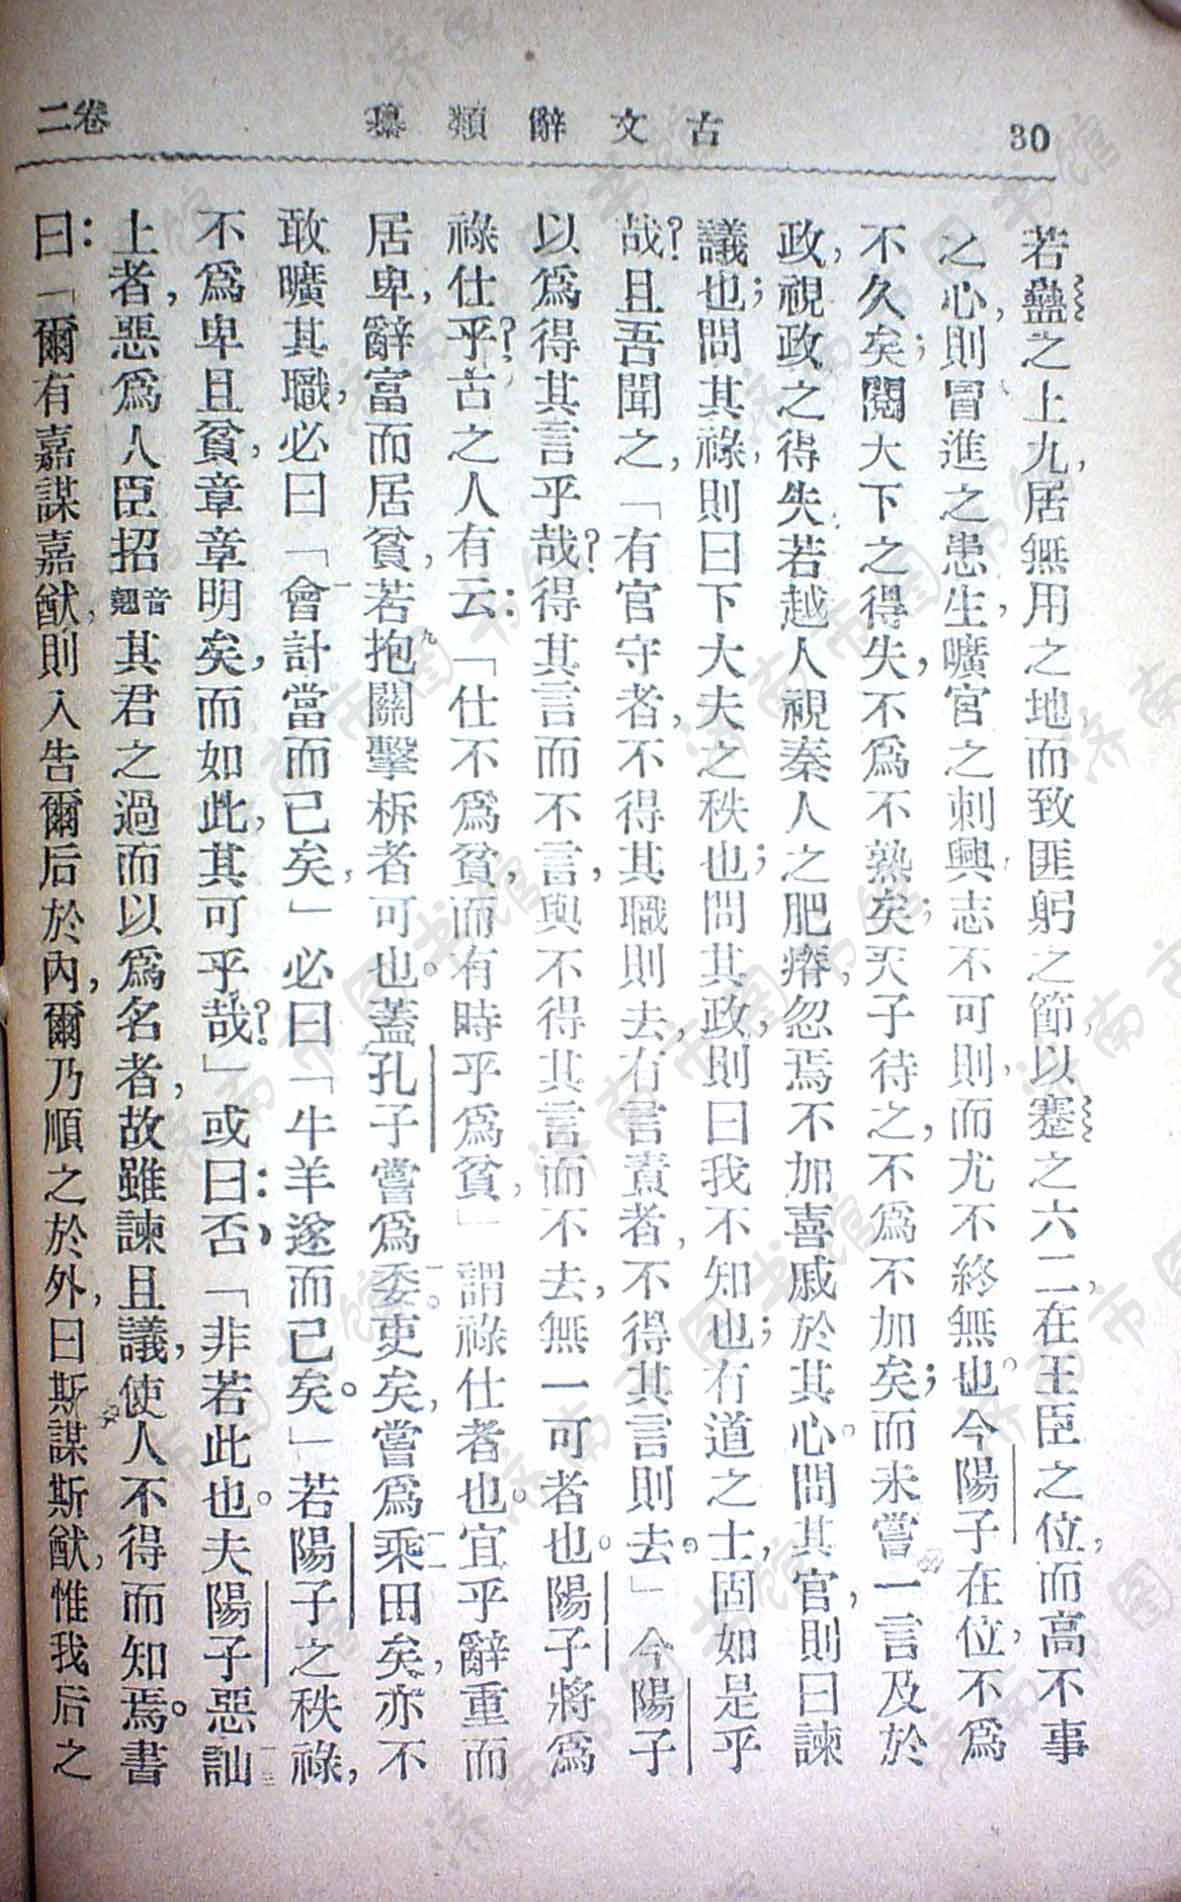 30
古文辭類纂
卷二
若蠱之上九，居無用之地，而致匪躬之節，以蹇之六二，在王臣之位，而高不事
之心，則冒進之患生，曠官之刺興，志不可則，而尤不終無也。今陽子在位，不爲
不久矣；聞天下之得失，不爲不熟矣；天子待之，不爲不加矣；而未嘗一言及於
政，視政之得失，若越人視秦人之肥瘠，忽焉不加喜戚於其心。問其官，則曰諫
議也；問其祿，則曰下大夫之秩也；問其政，則曰我不知也；有道之士，固如是乎
哉？且吾聞之，「有官守者，不得其職則去，有言責者，不得其言則去。」今陽子
以爲得其言乎哉？得其言而不言，與不得其言而不去，無一可者也。陽子將爲
祿仕乎？古之人有云：「仕不爲貧，而有時乎爲貧，」謂祿仕者也。宜乎辭重而
居卑，辭富而居貧，若抱九關擊柝者可也。蓋孔子嘗爲委一吏矣，嘗爲乘二田矣，亦不
敢曠其職，必曰「會一計當而已矣，」必曰「牛羊遂而已矣。」若陽子之秩祿，
不爲卑且貧，章章明矣，而如此，其可乎哉？」或曰：否，「非若此也。夫陽子惡訕三
上者，惡爲人臣招音翹其君之過而以爲名者，故雖諫且議，使人不得而知焉。書
曰：「爾有嘉謀嘉猷，則入告爾后於內，爾乃順之於外，曰斯謀斯猷，惟我后之